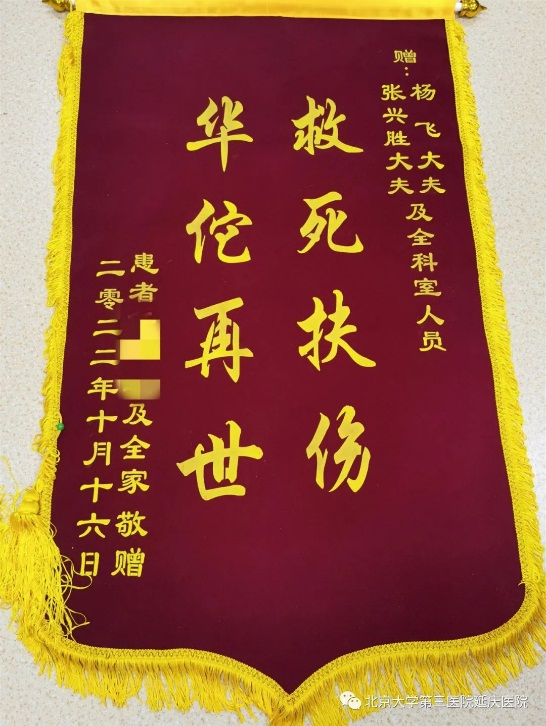 赠：杨飞大夫
张兴胜大夫及全科室人员
救死扶伤
华佗再世
患者及全家敬赠
二零二二年十月十六日
北京大学第三医院延庆医院